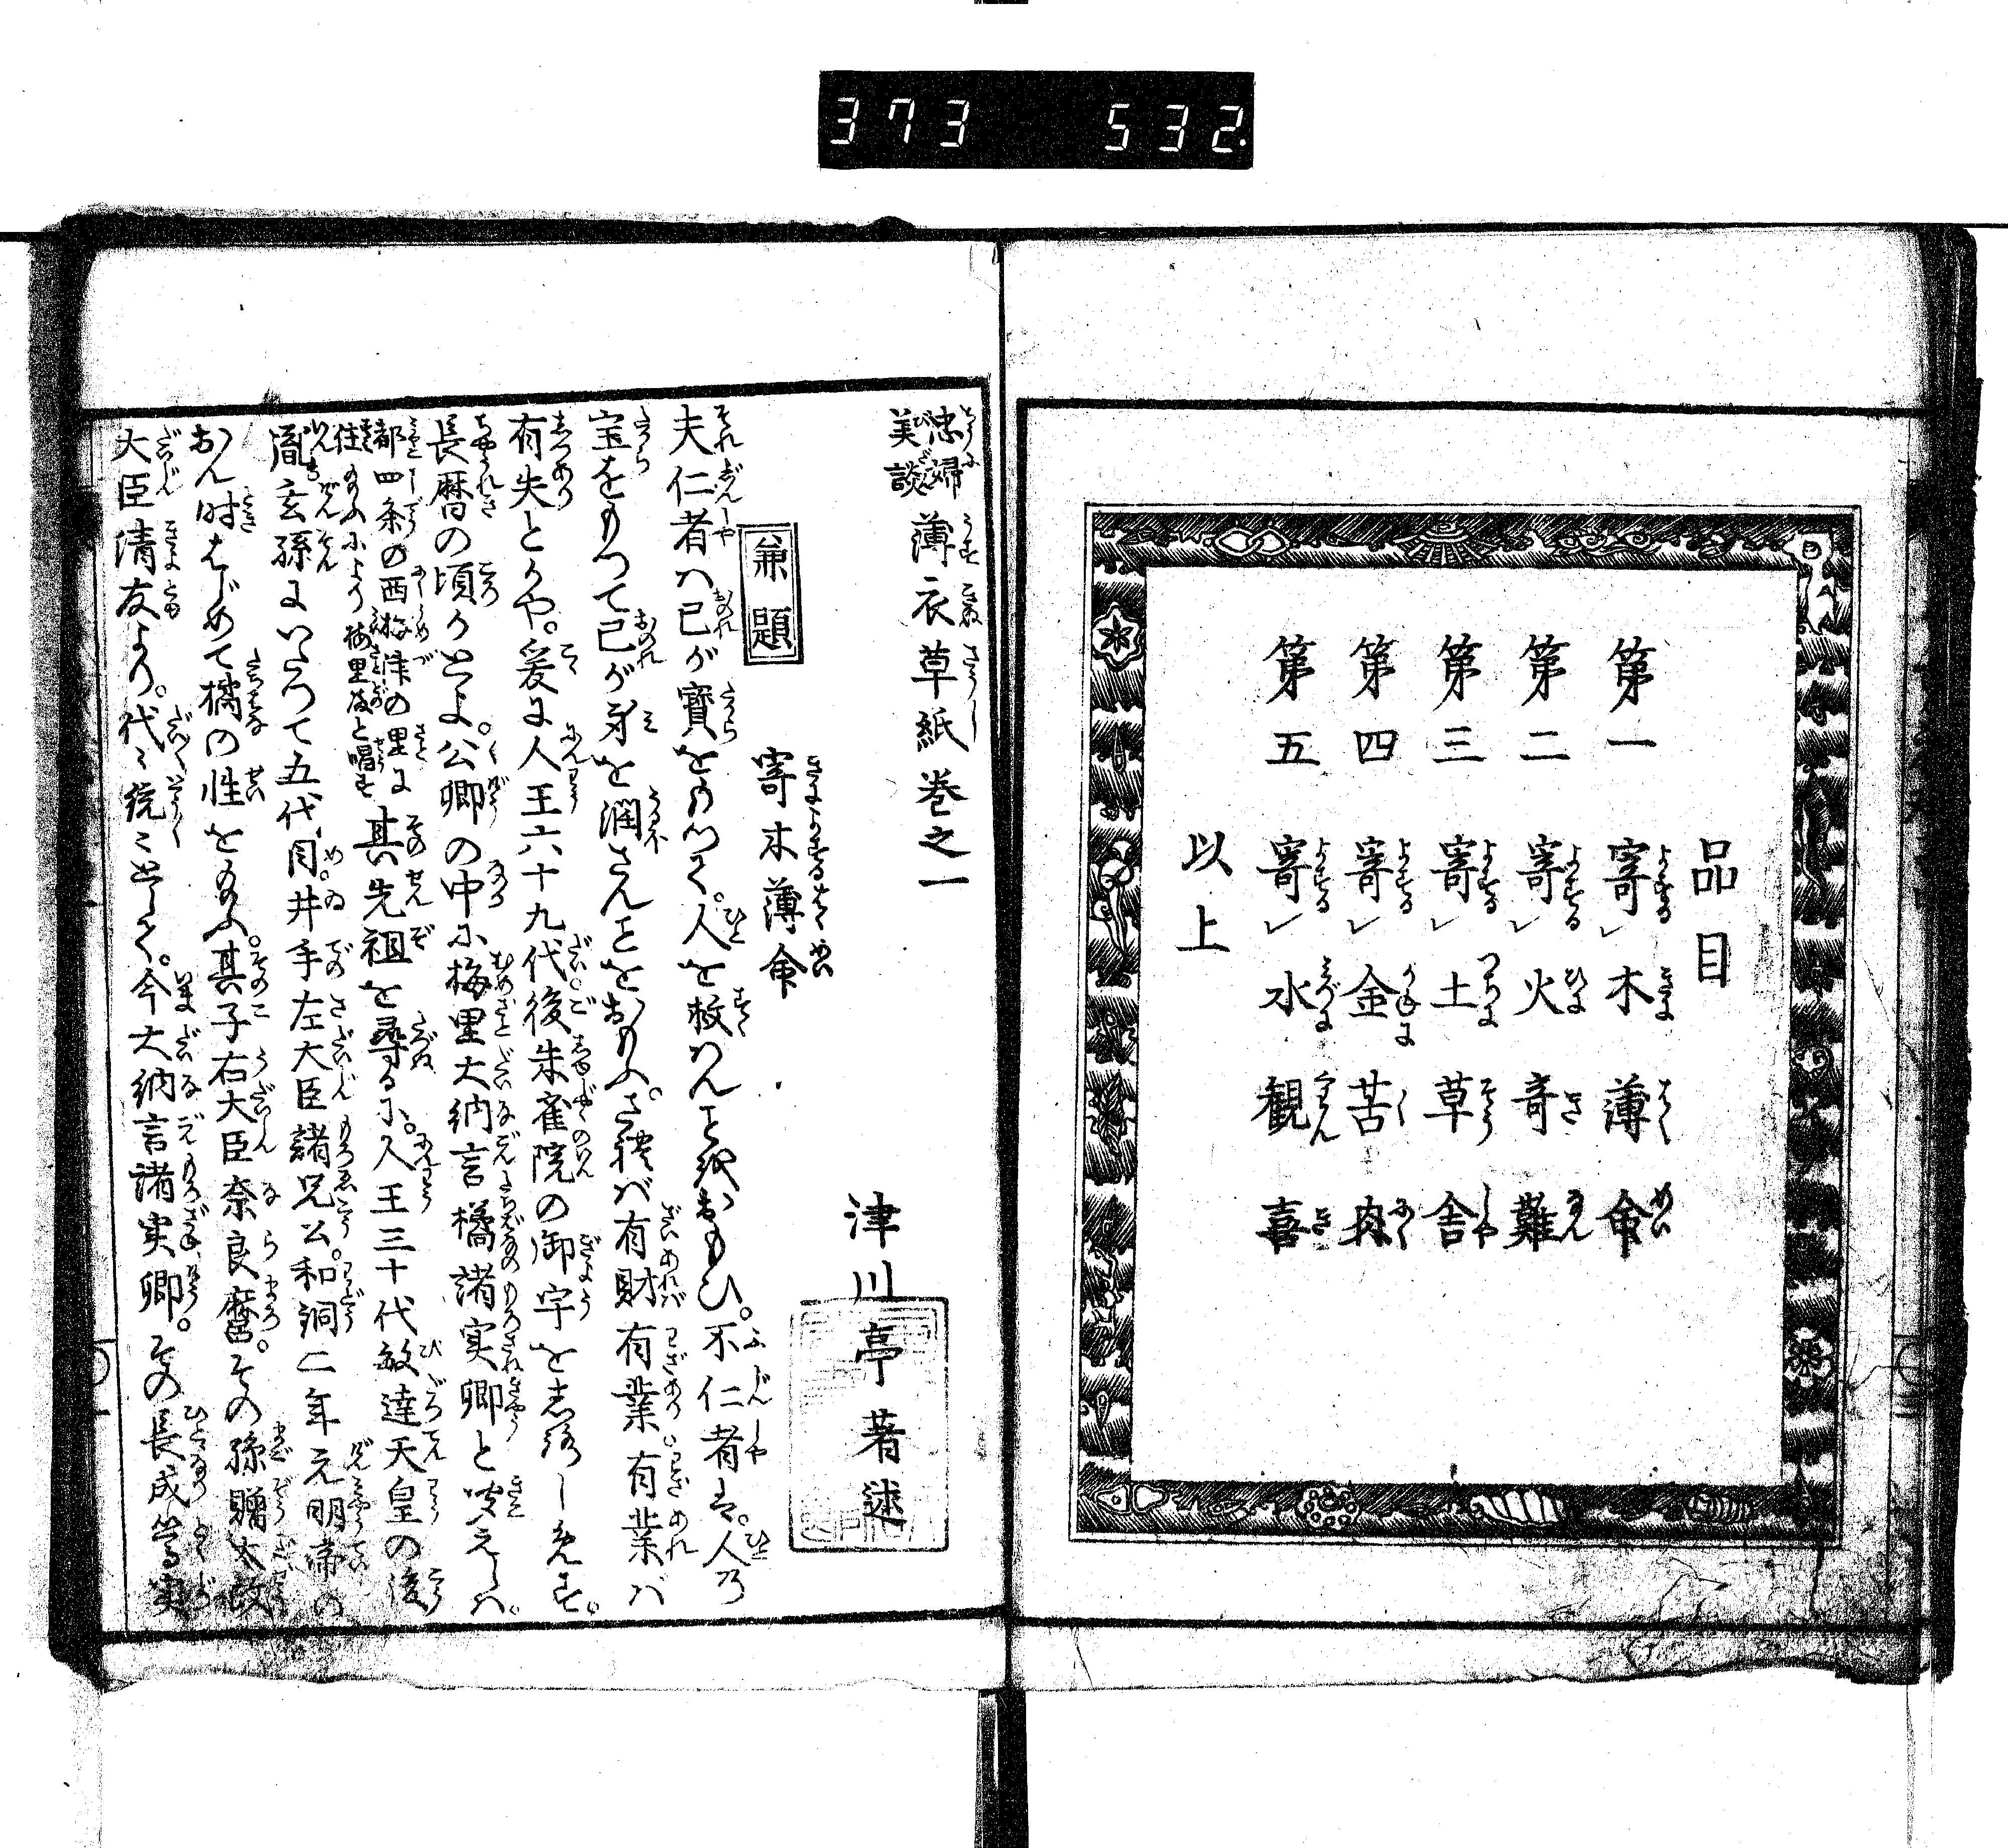 373 532
品目
第一 寄木薄命
第二 寄火奇難
第三 寄土草舎
第四 寄金苦肉
第五 寄水観喜
以上
忠婦美談 薄衣草紙巻之一
津川亭著述
兼題 寄木薄命
夫仁者ハ已が寳をもつて。人を救ハんと欲おもひ。不仁者は。人乃
宝をもつて已が身を潤さんとをおもふ。され ば有財有業有業バ
有失とかや。爰に人王六十九代後朱雀院の御宇をしろしめす。
長暦の頃かとよ。公卿の中に梅里大納言橘諸実卿と聞えしハ。
都四条の西梅津の里に
住給ふにより梅里殿と唱ず
其先祖を尋るに。人王三十代敏達天皇の後
胤玄孫にいたつて五代目。井手左大臣諸兄公。和銅二年元明帝の
おん時はじめて橘の性を給ふ。其子右大臣奈良麿。その孫贈太政
大臣清友より。代々統々として。今大納言諸実卿。その長成等実